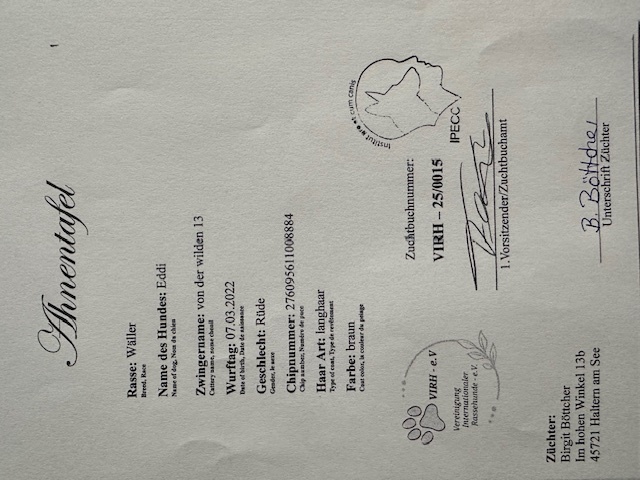 Ahnentafel
Rasse: Wäller
Breed, Race
Name des Hundes: Eddi
Name of dog, Nom du chien
Zwingername: von der wilden 13
Cattery name, nome chenil
Wurftag: 07.03.2022
Date of birth, Date de naissance
Geschlecht: Rüde
Gender, le sexe
Chipnummer: 276095611008884
Chip number, Numéro de puce
Haar Art: langhaar
Type of coat, Type de revêtement
Farbe: braun
Coat color, la couleur du pelage
VIRH - e.V
Vereinigung
Internationaler
Rassehunde - e.V.
Zuchtbuchnummer:
VIRH – 25/0015
1.Vorsitzender/Zuchtbuchamt
cum canis
IPECC
Züchter:
Birgit Böttcher
Im hohen Winkel 13b
45721 Haltern am See
B. Böttcher
Unterschrift Züchter